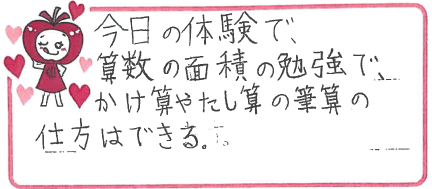 今日の体験で、
算数の面積の勉強で、
かけ算やたし算の筆算の
仕方はできる。